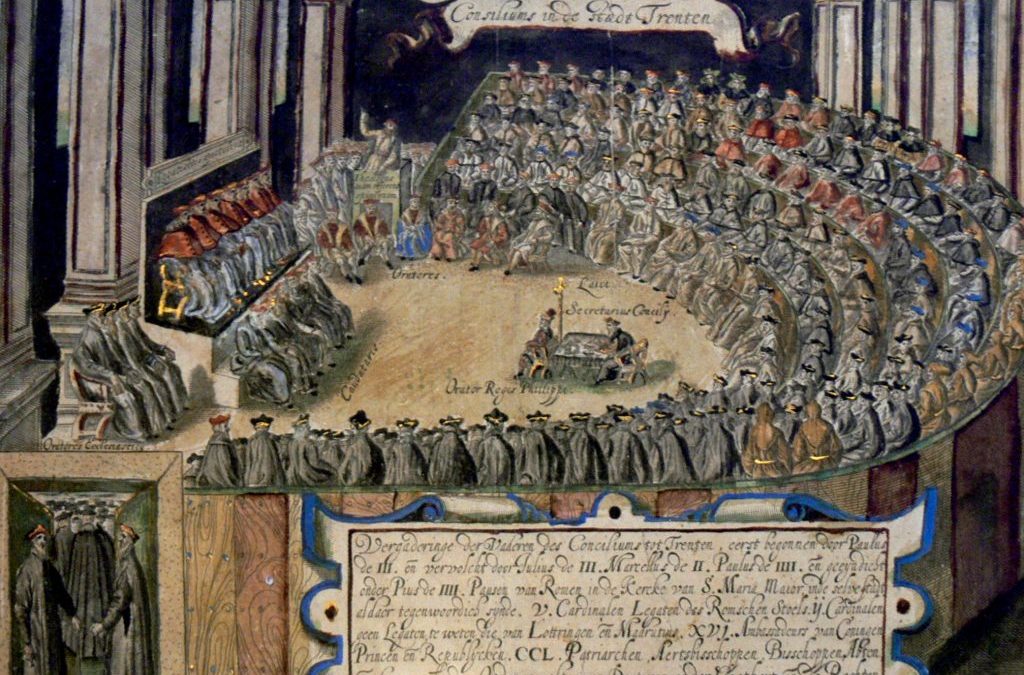 Consiliums in de Stadt Trenten
Oratores.
Laici
Secretarius Concilÿ.
Orator Regis Philippi
Oratores Ecclesiastici
Vergaderinge der Vaderen des Conciliums tot Trenten eerst begonnen door Paulus
de III. en vervolcht door Julius de III. Marcellus de II. Paulus de IIII. en geeyndicht
onder Pius de IIII. Pausen van Romen in de Kercke van S. Maria Maior, inde selve stadt
aldaer tegenwoordich synde. V. Cardinalen Legaten des Romschen Stoels. IJ. Cardinalen
geen Legaten, te weten die van Lottringen en Madrutius. XVI. Ambassdeurs van Coningen
Princen en Republycken. CCL. Patriarchen, Aertsbisschoppen, Bisschoppen, Abten